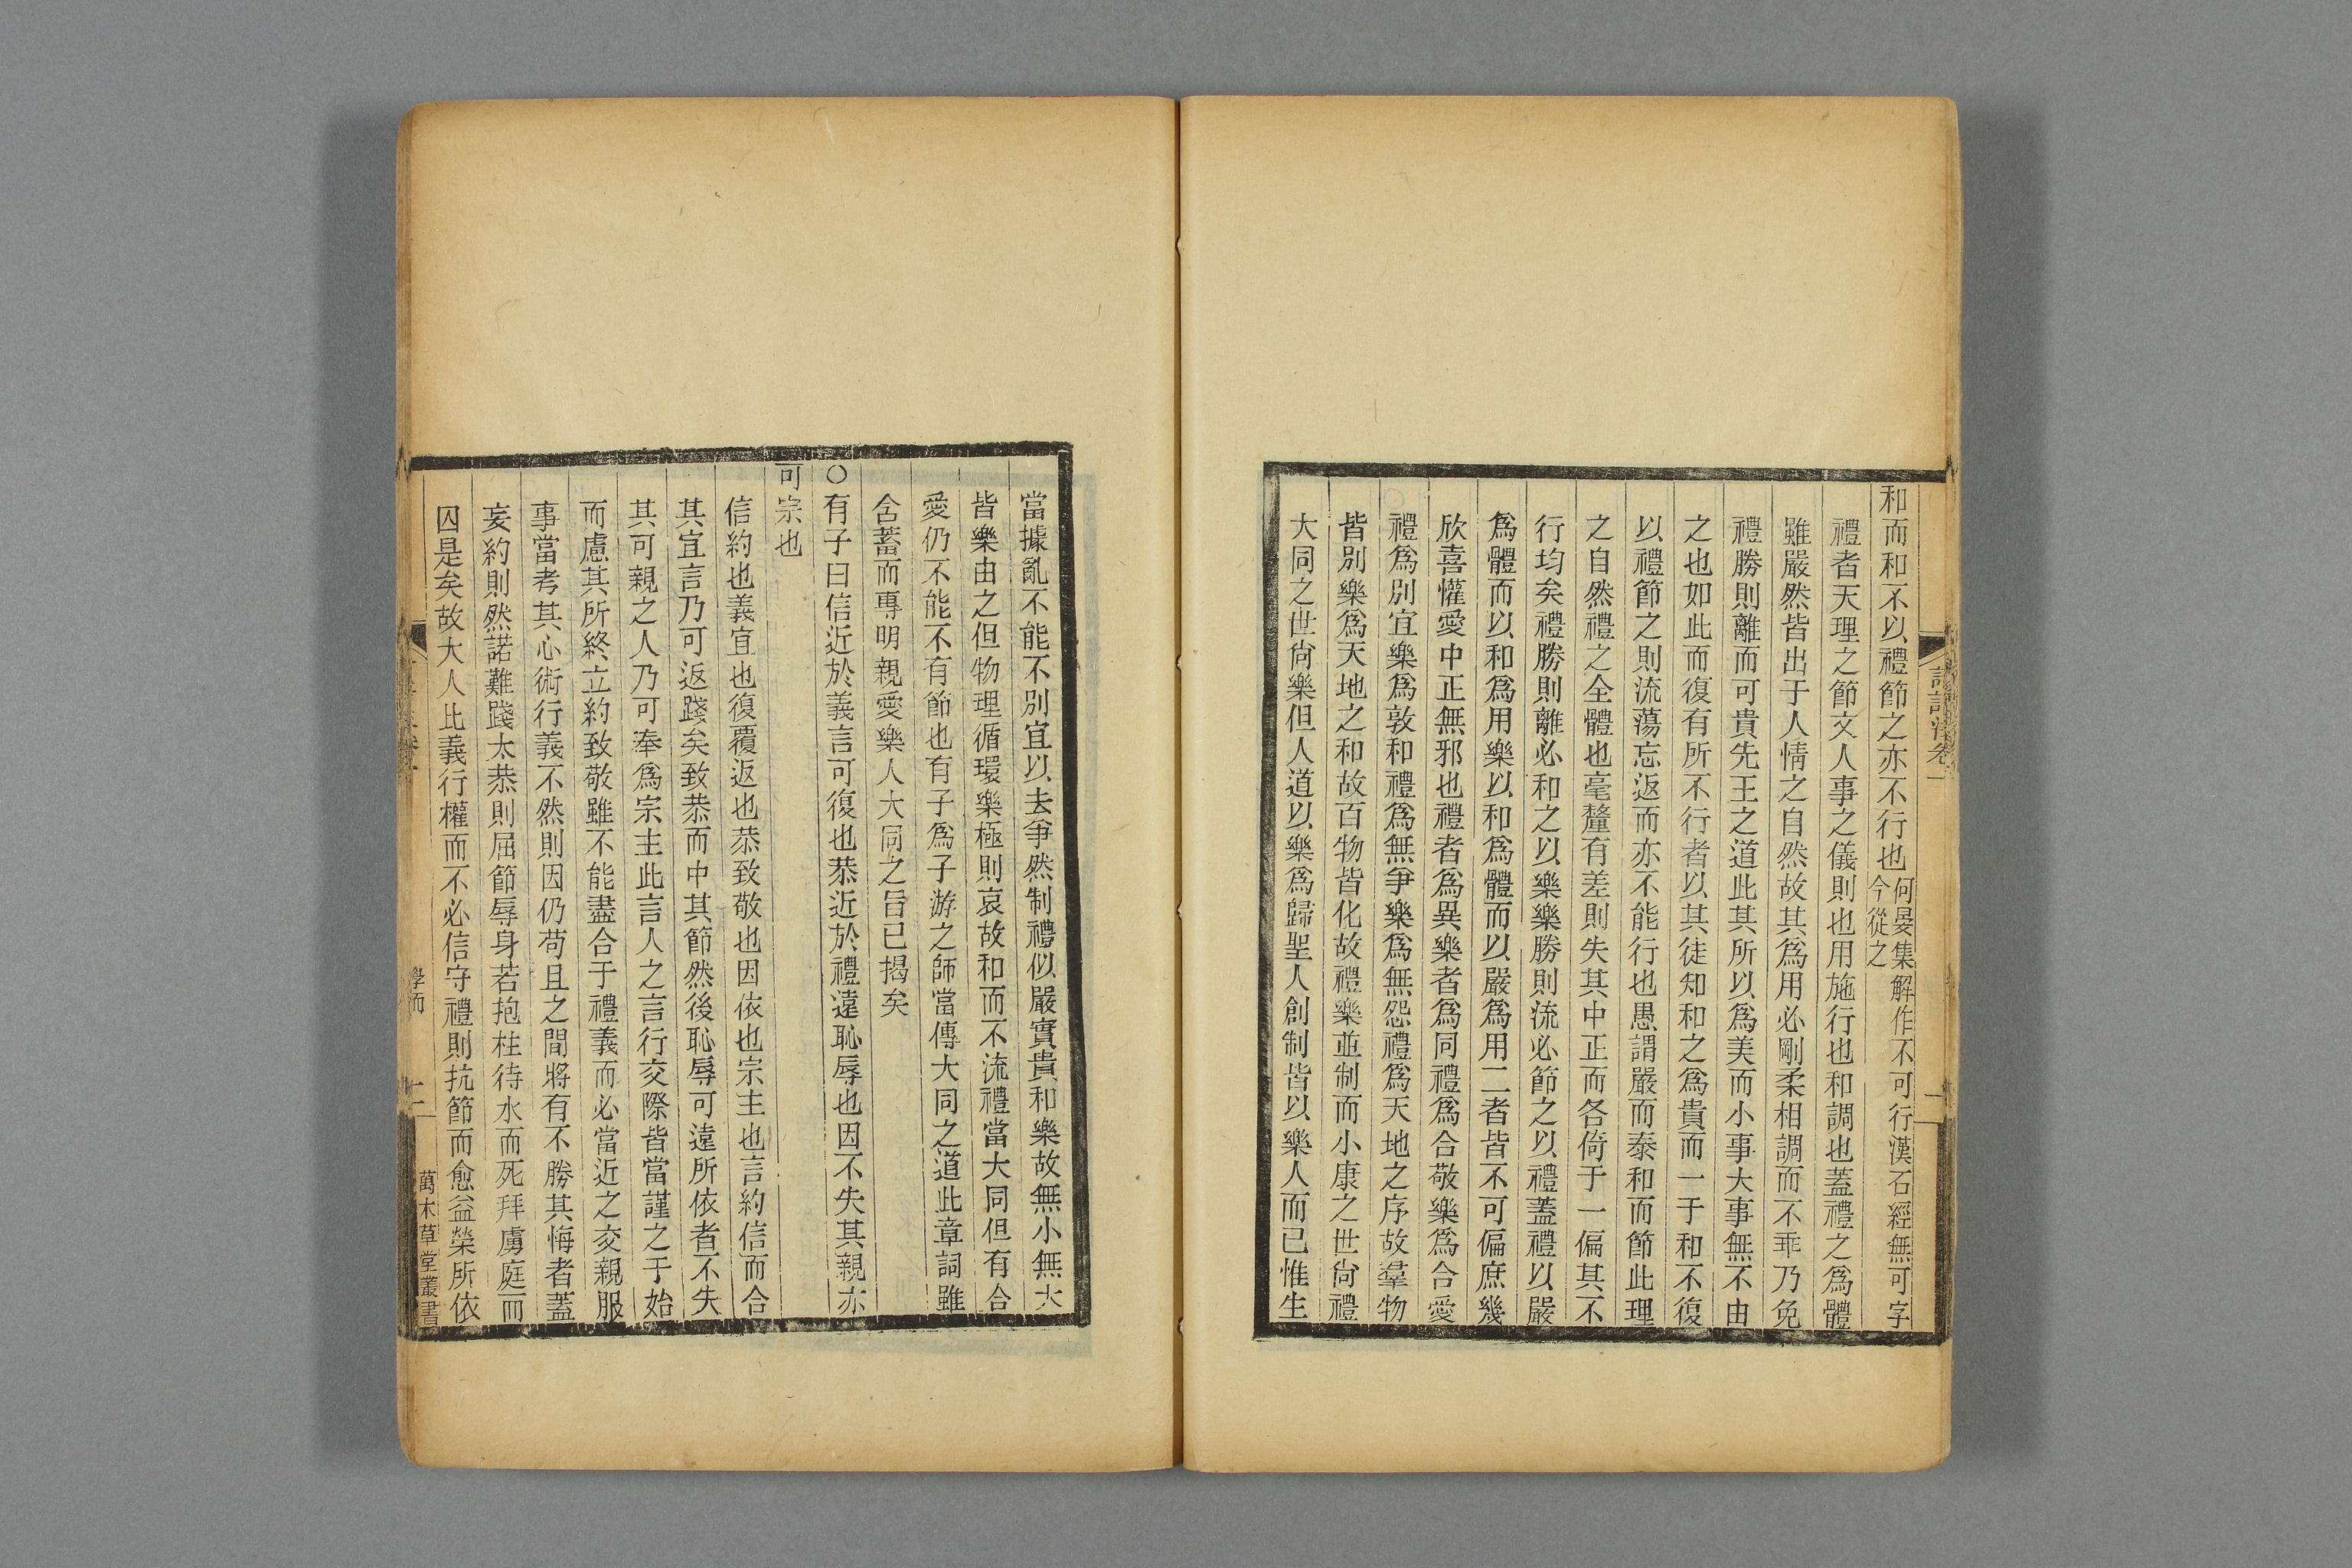 和而和不以禮節之亦不行也何晏集解作不可行漢石經無可字
今從之
禮者天理之節文人事之儀則也用施行也和調也蓋禮之爲體
雖嚴然皆出于人情之自然故其爲用必剛柔相調而不乖乃免
禮勝則離而可貴先王之道此其所以爲美而小事大事無不由
之也如此而復有所不行者以其徒知和之爲貴而一于和不復
以禮節之則流蕩忘返而亦不能行也愚謂嚴而泰和而節此理
之自然禮之全體也毫釐有差則失其中正而各倚于一偏其不
行均矣禮勝則離必和之以樂樂勝則流必節之以禮蓋禮以嚴
爲體而以和爲用樂以和爲體而以嚴爲用二者皆不可偏庶幾
欣喜懽愛中正無邪也禮者爲異樂者爲同禮爲合敬樂爲合愛
禮爲別宜樂爲敦和禮爲無爭樂爲無怨禮爲天地之序故羣物
皆別樂爲天地之和故百物皆化故禮樂並制而小康之世尙禮
大同之世尙樂但人道以樂爲歸聖人創制皆以樂人而已惟生
當據亂不能不別宜以去爭然制禮似嚴實貴和樂故無小無大
皆樂由之但物理循環樂極則哀故和而不流禮當大同但有合
愛仍不能不有節也有子爲子游之師當傳大同之道此章詞雖
含蓄而專明親愛樂人大同之旨已揭矣
○有子曰信近於義言可復也恭近於禮遠恥辱也因不失其親亦
可宗也
信約也義宜也復覆返也恭致敬也因依也宗主也言約信而合
其宜言乃可返踐矣致恭而中其節然後恥辱可遠所依者不失
其可親之人乃可奉爲宗主此言人之言行交際皆當謹之于始
而慮其所終立約致敬雖不能盡合于禮義而必當近之交親服
事當考其心術行義不然則因仍苟且之間將有不勝其悔者蓋
妄約則然諾難踐太恭則屈節辱身若抱柱待水而死拜虜庭而
囚是矣故大人比義行權而不必信守禮則抗節而愈益榮所依
學而
二
萬木草堂叢書